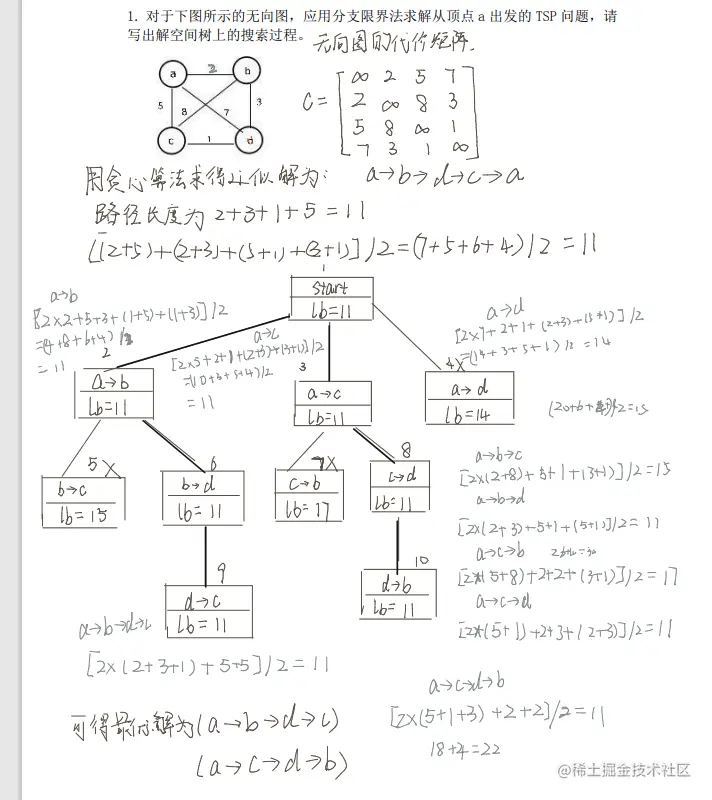 1. 对于下图所示的无向图，应用分支限界法求解从顶点 a 出发的 TSP 问题，请
写出解空间树上的搜索过程。 无向图的代价矩阵.
a 2 b
5 8 7 3
c 1 d
C =
∞ 2 5 7
2 ∞ 8 3
5 8 ∞ 1
7 3 1 ∞
用贪心算法求得近似解为: a→b→d→c→a
路径长度为 2+3+1+5 = 11
[(2+5)+(2+3)+(5+1)+(3+1)]/2=(7+5+6+4)/2 = 11
1
start
lb=11
a→b
[2×2+5+3+(1+5)+(1+3)]/2
= 11
a→c
[2×5+2+1+(2+3)+(3+1)]/2
=(10+3+5+4)/2
= 11
a→d
[2×7+2+1+(2+3)+(5+1)]/2
=14
2
a→b
lb=11
3
a→c
lb=11
4×
a→d
lb=14
5 ×
b→c
lb=15
6
b→d
lb=11
7×
c→b
lb=17
8
c→d
lb=11
9
d→c
lb=11
10
d→b
lb=11
a→b→c
[2×(2+8)+5+1+(3+1)]/2=15
a→b→d
[2×(2+3)+5+1+(5+1)]/2= 11
a→c→b
[2×(5+8)+2+2+(3+1)]/2=17
a→c→d
[2×(5+1)+2+3+(2+3)]/2=11
a→b→d→c
[2×(2+3+1)+5+5]/2=11
a→c→d→b
[2×(5+1+3)+2+2]/2=11
18+4=22
可得最优解为(a→b→d→c)
(a→c→d→b)
@稀土掘金技术社区